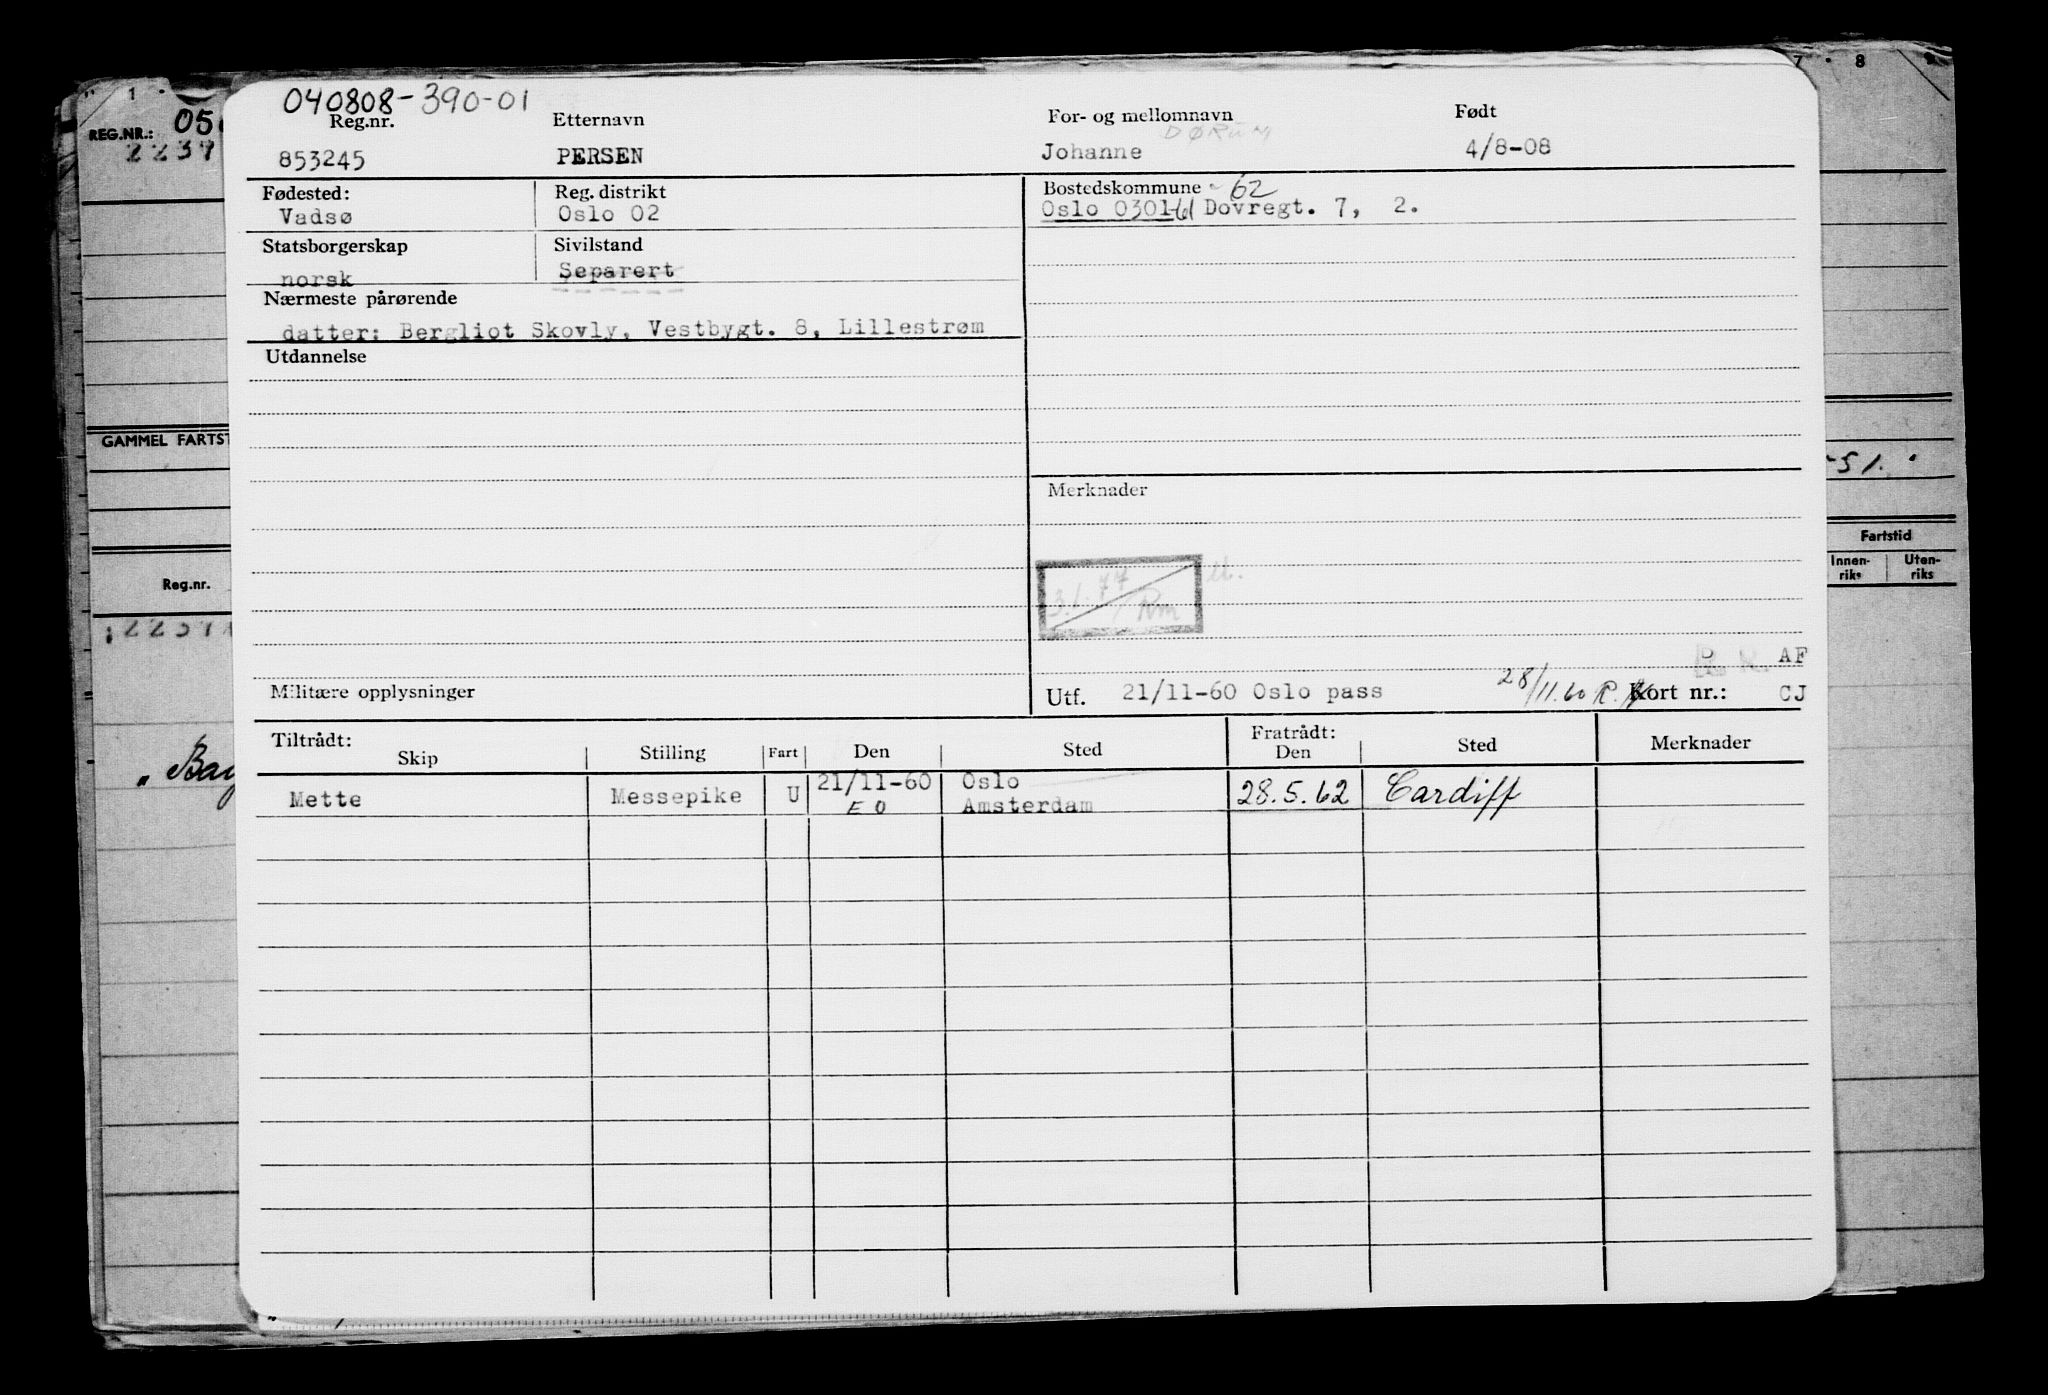 040808-390-01
Reg.nr. Etternavn For- og mellomnavn Født
DØRUM
853245 PERSEN Johanne 4/8-08
Fødested: Reg. distrikt Bostedskommune -62
Vadsø Oslo 02 Oslo 0301-61 Dovregt. 7, 2.
Statsborgerskap Sivilstand
norsk Separert
Nærmeste pårørende
datter: Bergliot Skovly, Vestbygt. 8, Lillestrøm
Utdannelse
Merknader
3.1.77
Rm
AF
Militære opplysninger Utf. 21/11-60 Oslo pass 28/11.60 Kort nr.: CJ
Tiltrådt: Fratrådt:
Skip Stilling Fart Den Sted Den Sted Merknader
Mette Messepike U 21/11-60 Oslo 28.5.62 Cardiff
EO Amsterdam
1
REG.NR.: 05
2237
GAMMEL FARTST
Reg.nr.
2237
" Bag
7 8 9
-51.
Fartstid
Innen-riks Uten-riks